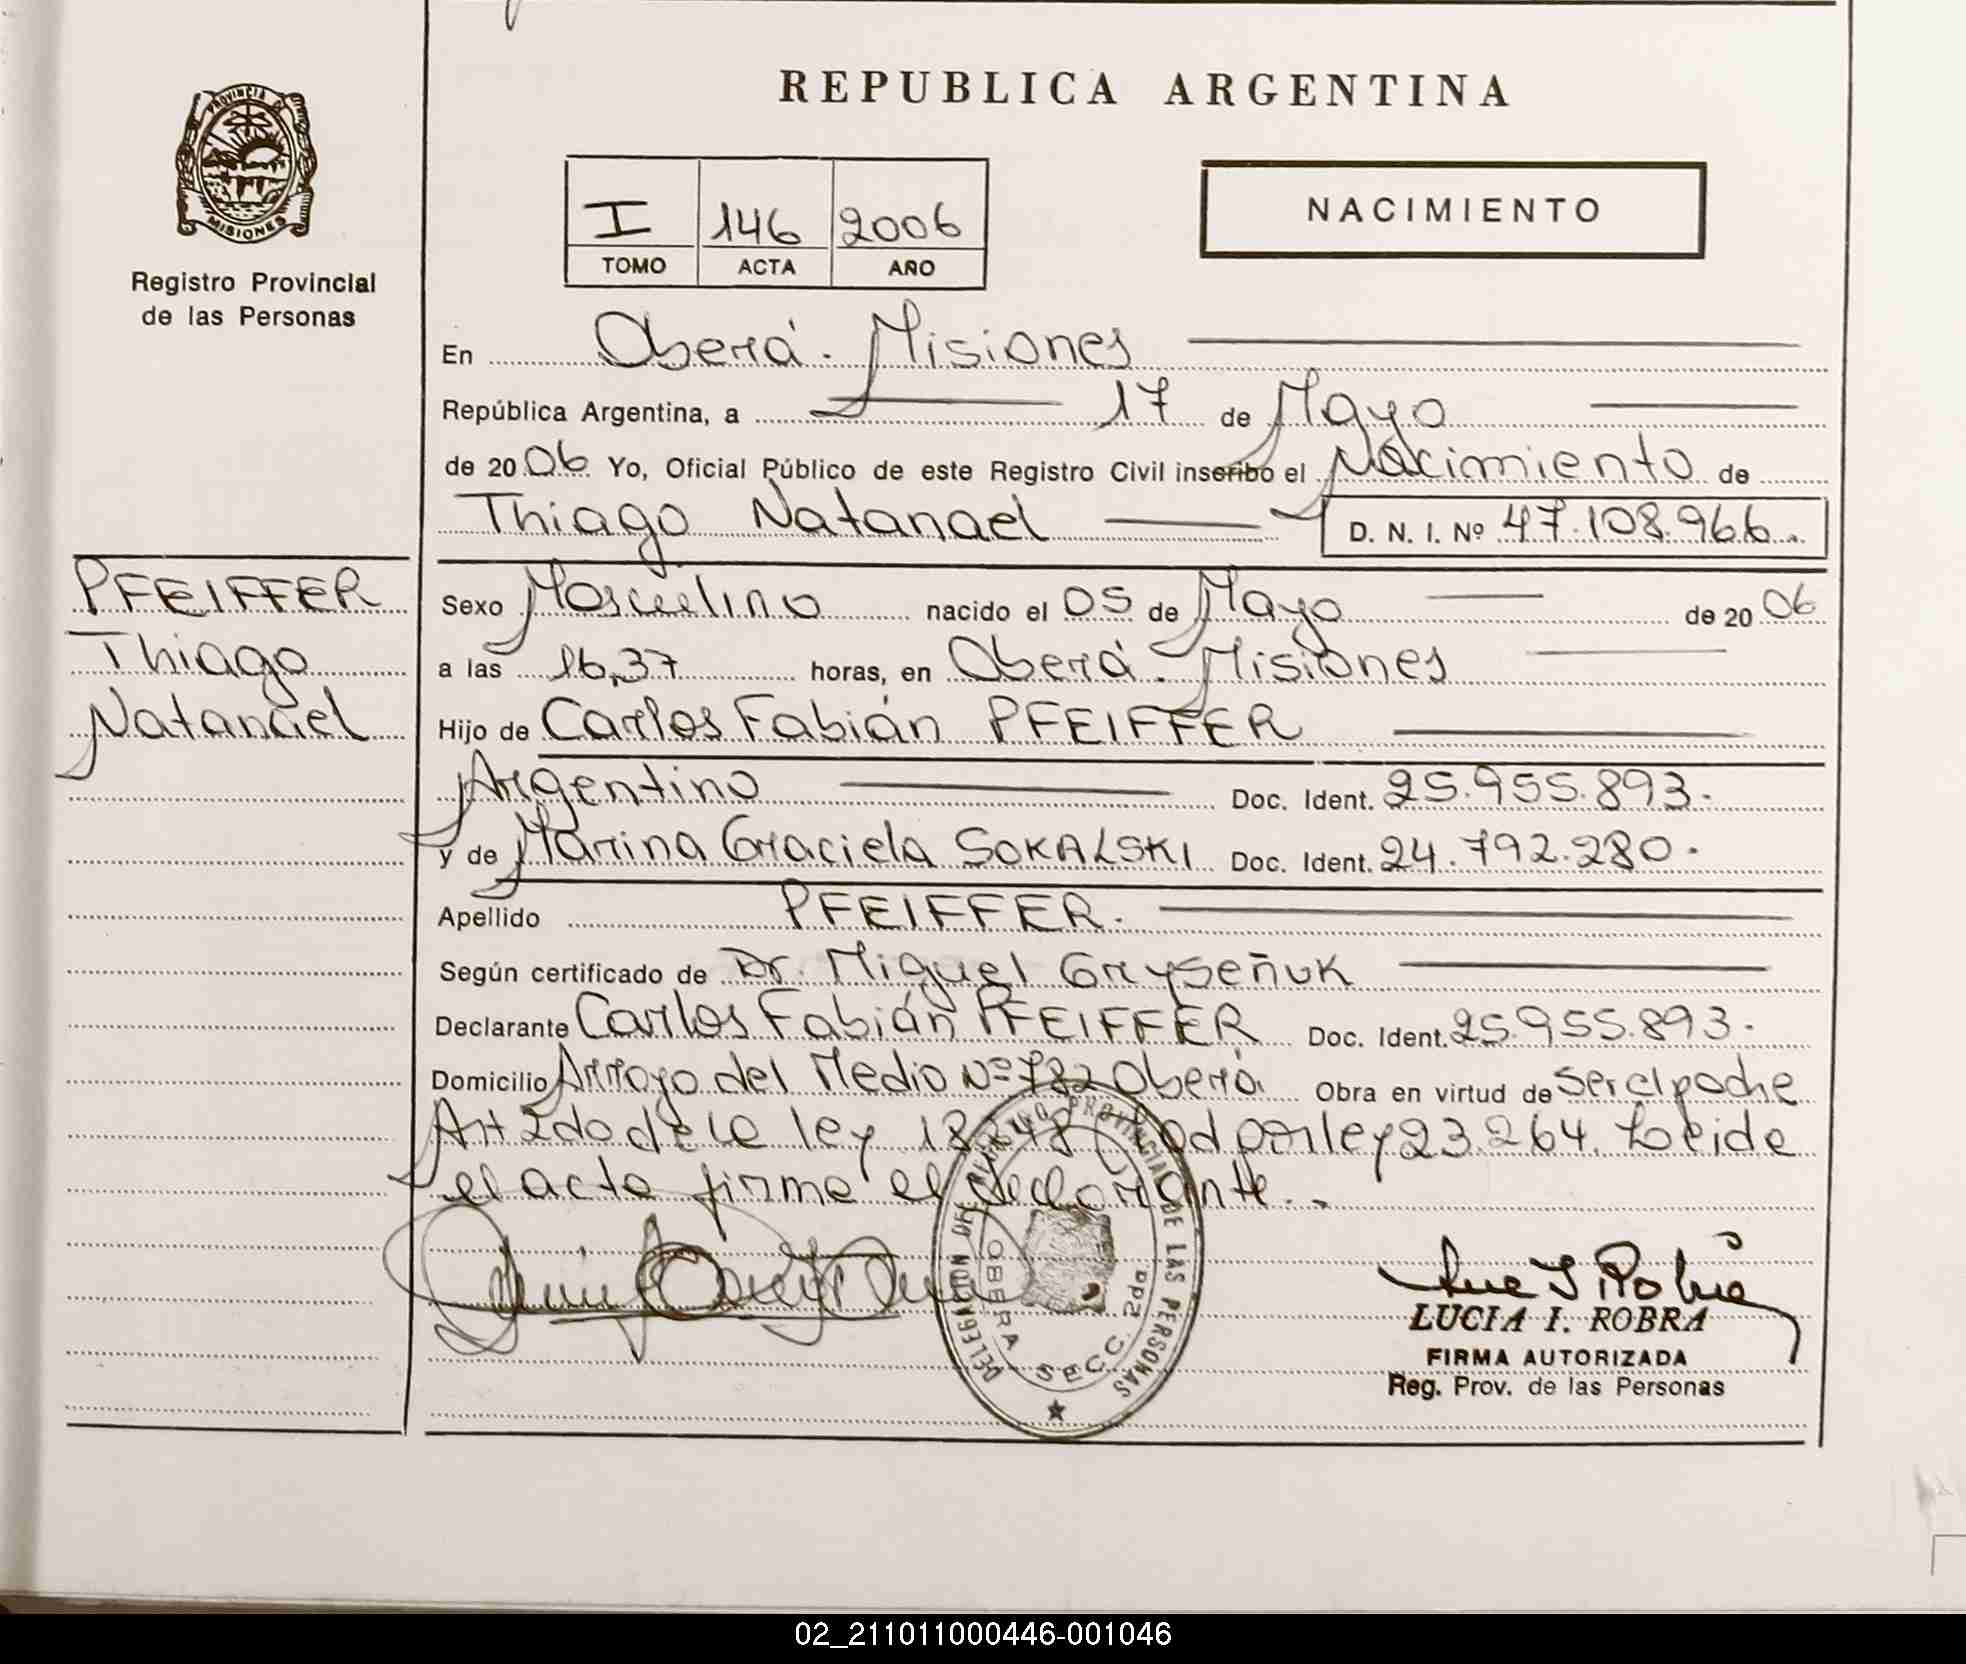 PROVINCIA DE
MISIONES
Registro Provincial
de las Personas
REPUBLICA ARGENTINA
I 146 2006
TOMO ACTA AÑO
NACIMIENTO
En Oberá. Misiones
República Argentina, a 17 de Mayo
de 2006 Yo, Oficial Público de este Registro Civil inscribo el Nacimiento de
Thiago Natanael D. N. I. Nº 47.108.966.
PFEIFFER
Thiago
Natanael
Sexo Masculino nacido el 05 de Mayo de 2006
a las 16,37 horas, en Oberá. Misiones
Hijo de Carlos Fabián PFEIFFER
Argentino Doc. Ident. 25.955.893.
y de Marina Graciela SOKALSKI Doc. Ident. 24.792.280.
Apellido PFEIFFER.
Según certificado de Dr. Miguel Gryseñuk
Declarante Carlos Fabián PFEIFFER Doc. Ident. 25.955.893.
Domicilio Arroyo del Medio Nº 782 Oberá. Obra en virtud de ser el padre
Art 2do de la ley 18248 Mod por ley 23.264. Leída
el acta firma el declarante..
DELEGACION DEL REGISTRO PROVINCIAL DE LAS PERSONAS
OBERA SECC. 2da
LUCIA I. ROBRA
FIRMA AUTORIZADA
Reg. Prov. de las Personas
02_211011000446-001046